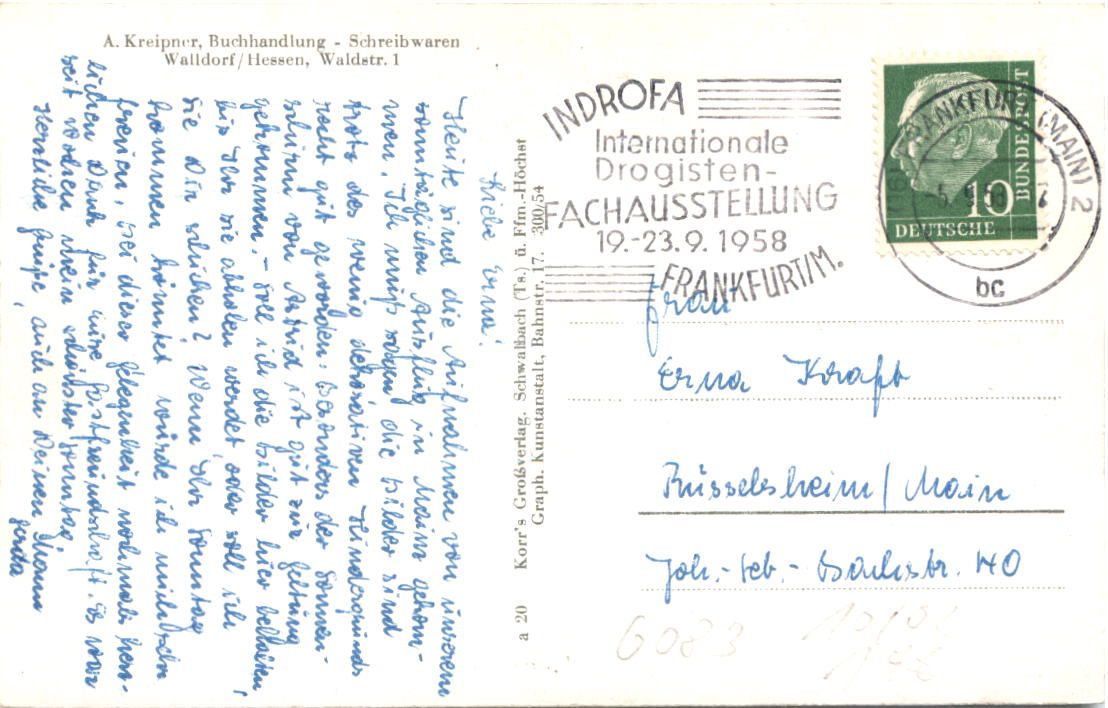 A. Kreipner, Buchhandlung - Schreibwaren
Walldorf/Hessen, Waldstr. 1
Liebe Erna!
Heute sind die Aufnahmen von unserem
sonntäglichen Ausflug in Mainz gekom-
men. Ich muß sagen die Bilder sind
trotz des wenig dekorativen Hintergrunds
recht gut geworden. Besonders der Sonnen-
schirm von Astrid ist gut zur Geltung
gekommen. - Soll ich die Bilder hier behalten
bis Ihr sie abholen werdet oder soll ich
sie Dir schicken? Wenn Ihr Sonntag
kommen könntet würde ich mich sehr
freuen, bei dieser Gelegenheit nochmals herz-
lichen Dank für eure Gastfreundschaft. Es war
seit Wochen mein schönster Sonntag.
Herzliche Grüße, auch an Deinen Mann
Gerda
a 20 Korr's Großverlag. Schwalbach (Ts.) ü. Ffm.-Höchst
Graph. Kunstanstalt, Bahnstr. 17. 300/54
INDROFA
Internationale
Drogisten-
FACHAUSSTELLUNG
19.-23.9.1958
FRANKFURT/M.
FRANKFURT (MAIN) 2
9.58
bc
10
DEUTSCHE
BUNDESPOST
Frau
Erna Kraft
Rüsselsheim/Main
Joh.-Seb.-Bachstr. 140
6083